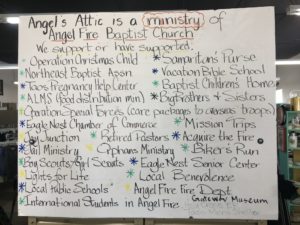 Angel's Attic is a ministry of
Angel Fire Baptist Church
We support or have supported:
Operation Christmas Child
Samaritan's Purse
Northeast Baptist Assn.
Vacation Bible School
Taos Pregnancy Help Center
Baptist Children's Home
ALMS (food distribution min)
Big Brothers & Sisters
Operation Special Forces (care packages to overseas troops)
Eagle Nest Chamber of Commerce
Mission Trips
Junction
Retired Pastors
Acquire the Fire
Jail Ministry
Orphans Ministry
Biker's Run
Boy Scouts/Girl Scouts
Eagle Nest Senior Center
Lights for Life
Local Benevolence
Local Public Schools
Angel Fire Fire Dept
International Students in Angel Fire
Gateway Museum